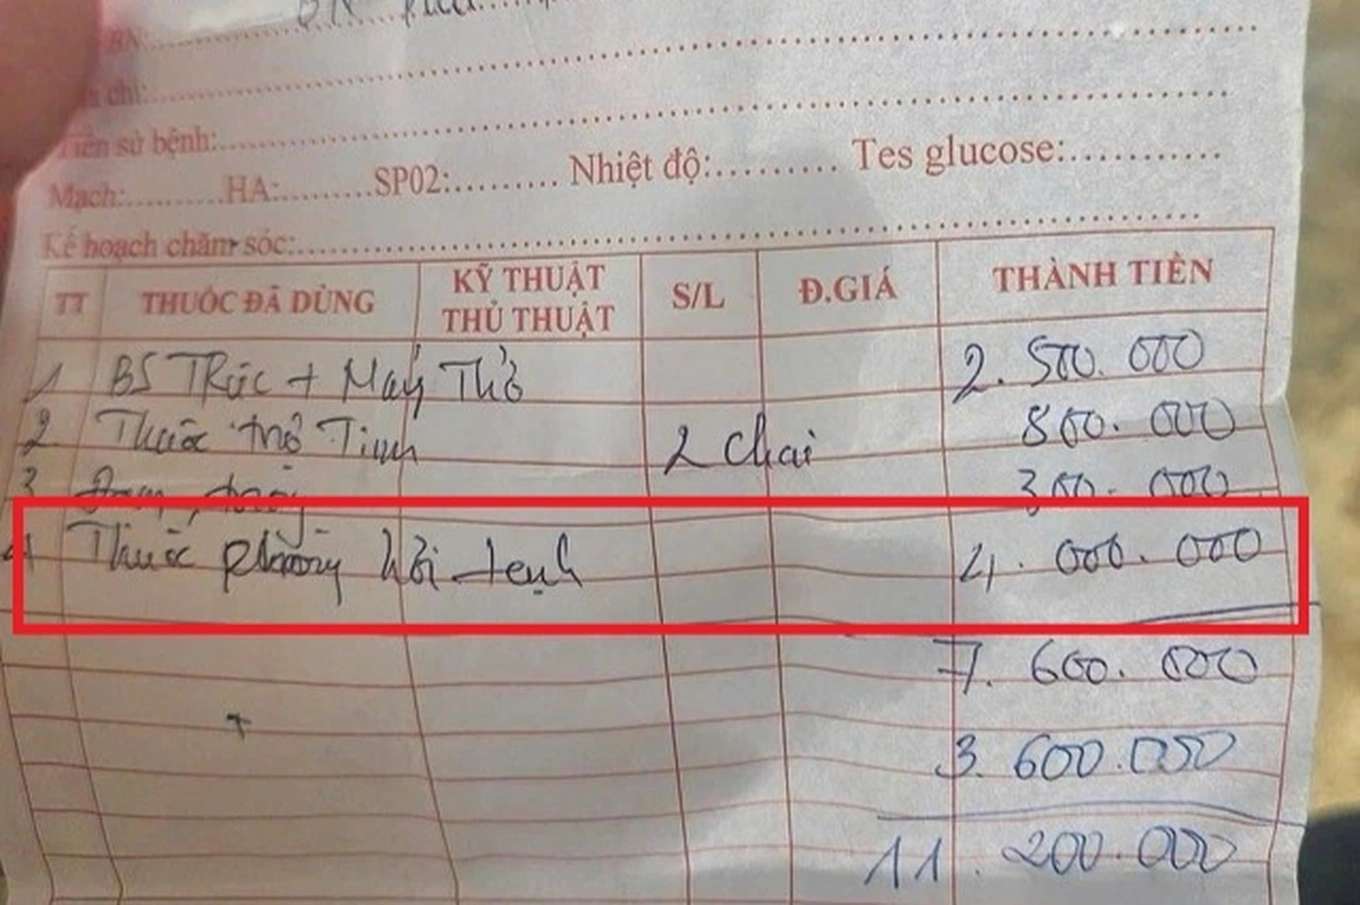 BN:
chỉ:
Tiền sử bệnh:
Mạch: HA: SP02: Nhiệt độ: Tes glucose:
Kế hoạch chăm sóc:
TT THUỐC ĐÃ DÙNG KỸ THUẬT THỦ THUẬT S/L Đ.GIÁ THÀNH TIỀN
1 BS TRực + Máy Thở 2.500.000
2 Thuốc trợ Tim 2 chai 800.000
3 300.000
4 Thuốc phòng hồi tỉnh 4.000.000
7.600.000
3.600.000
11.200.000